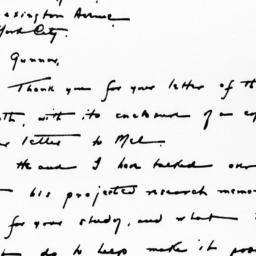 exington Avenue
York City.
Gunnar,
Thank you for your letter of th
th, with its enclosure of a cop
r letter to Mel.
He and I have talked over
his projected research memo
for your study, and what
t do to help make it poss